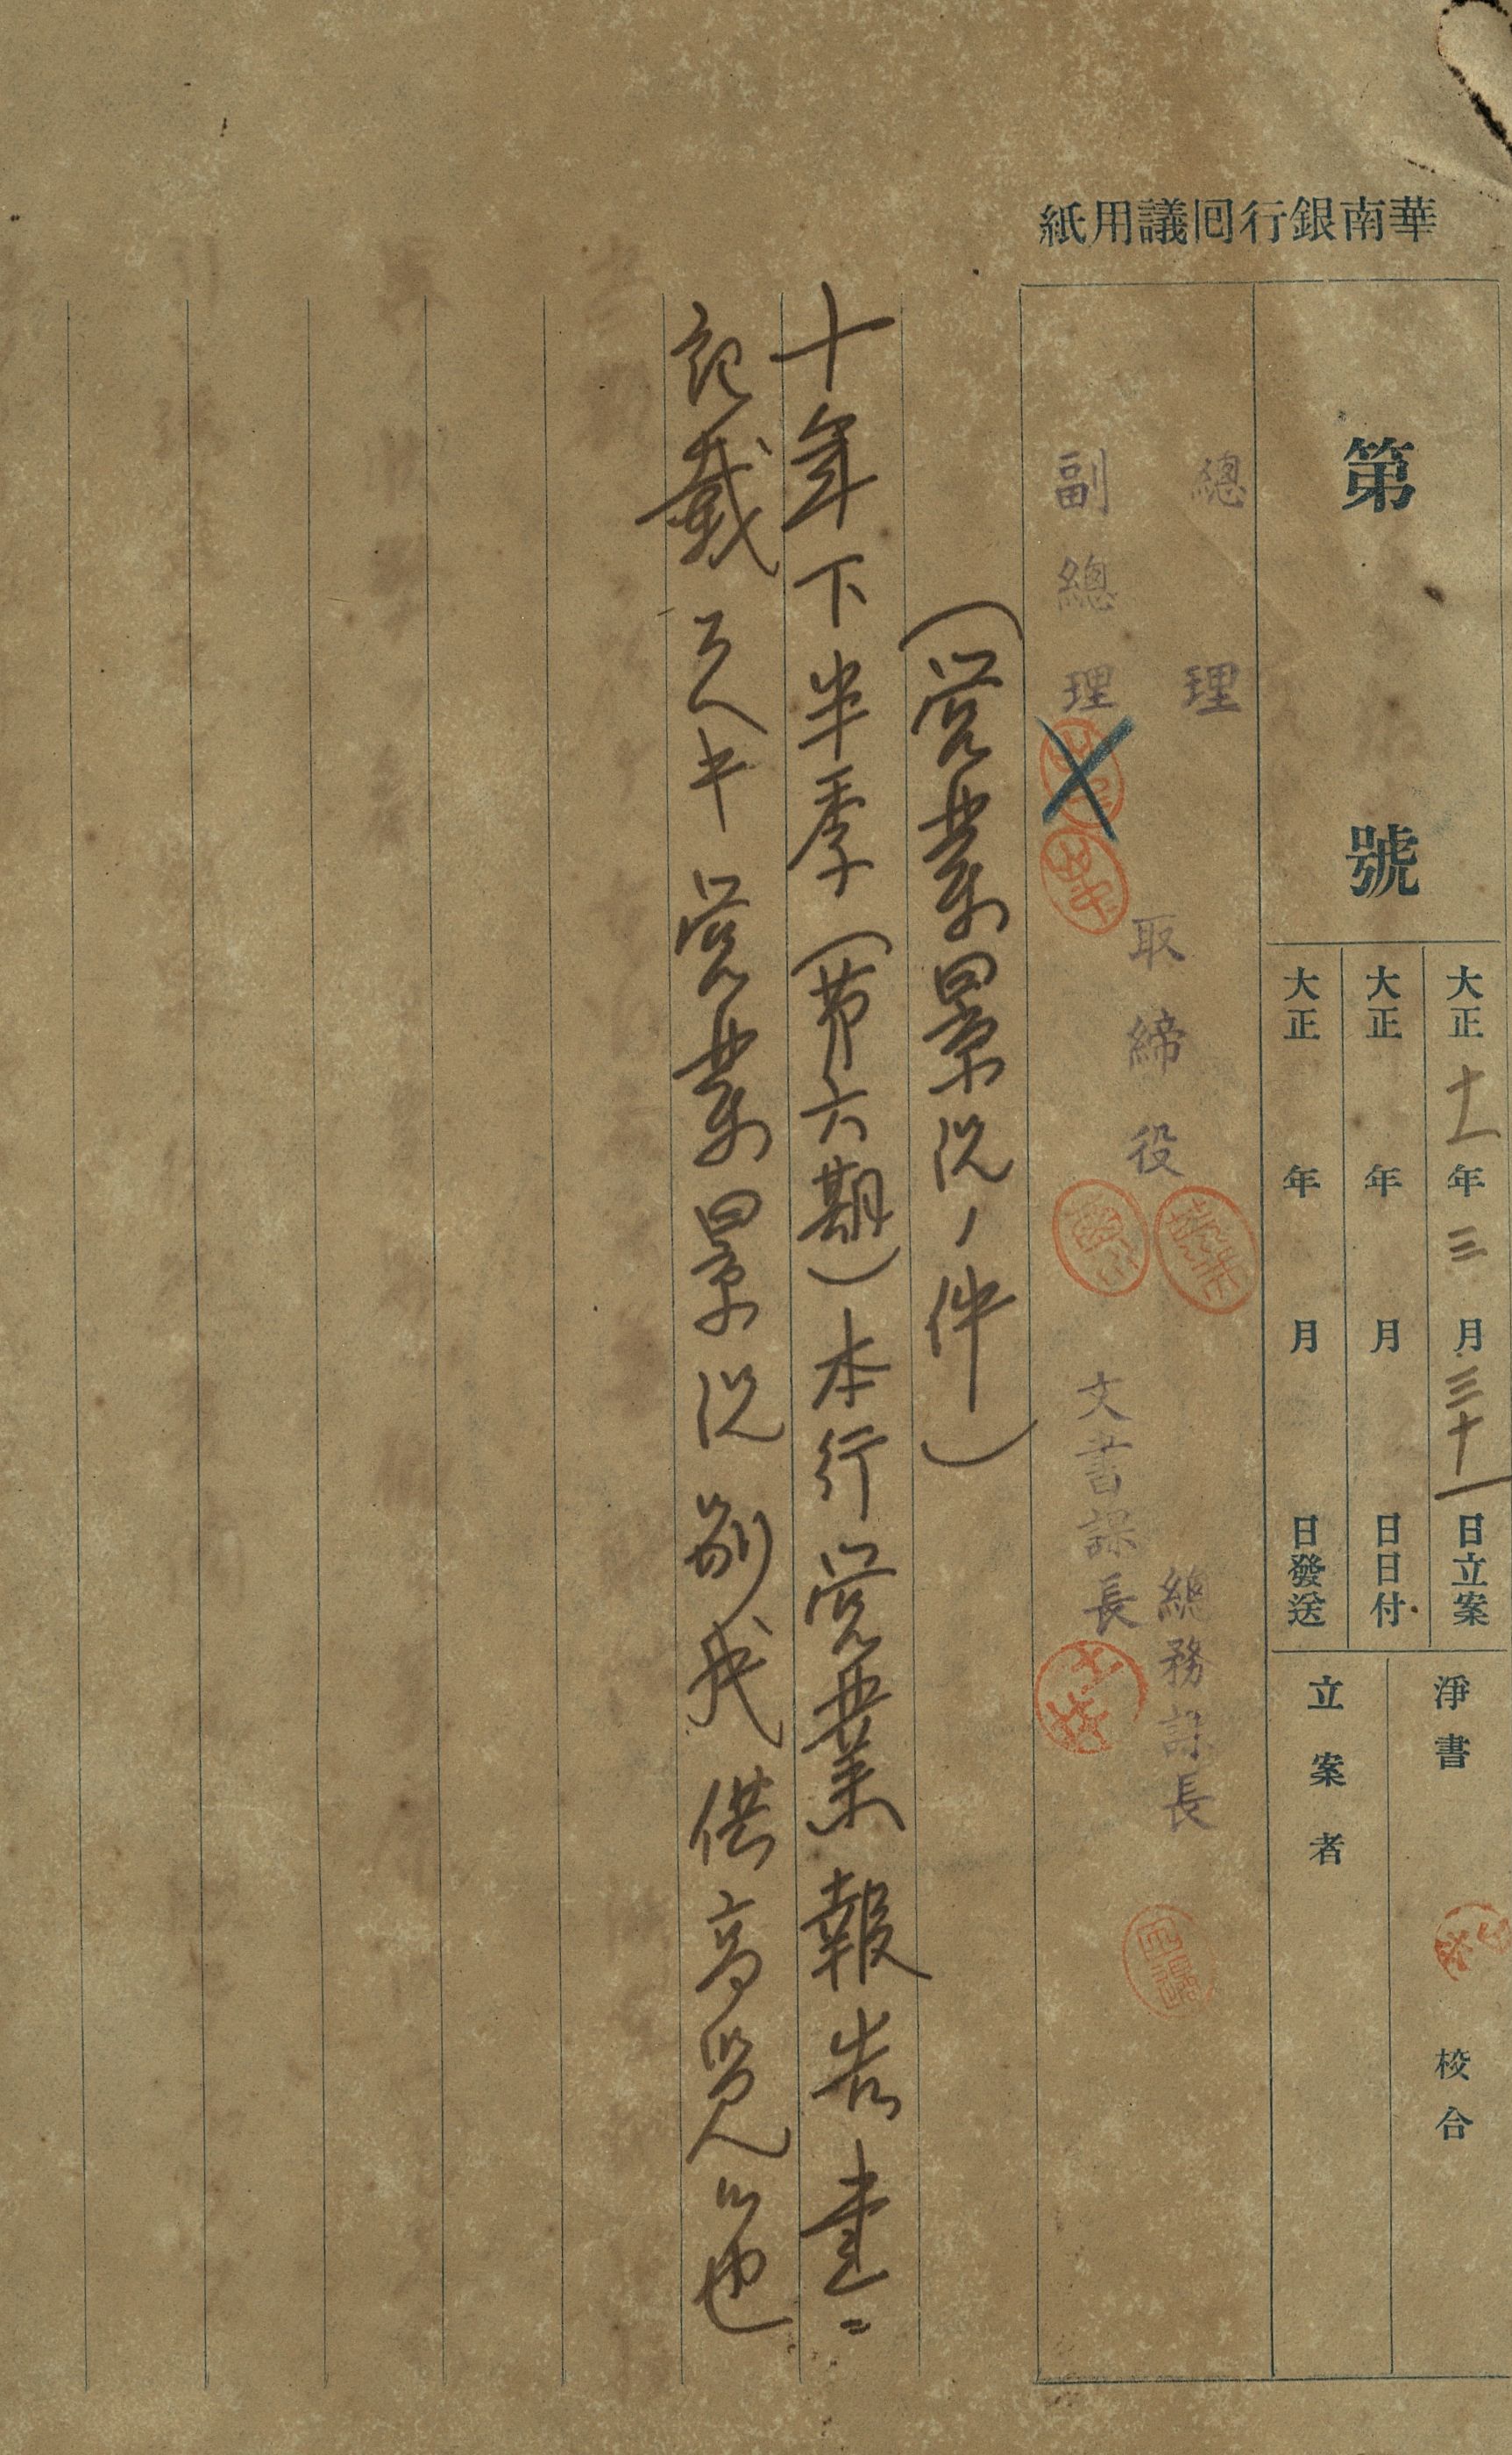 華南銀行囘議用紙
第 號
大正十一年三月三十一日立案
大正 年 月 日日付
大正 年 月 日發送
淨書 校合
立案者
總理
副總理
取締役
總務課長
文書課長
(営業景況ノ件)
十年下半季(第六期)本行営業報告書ニ
記載スベキ営業景況別紙供高覧候也